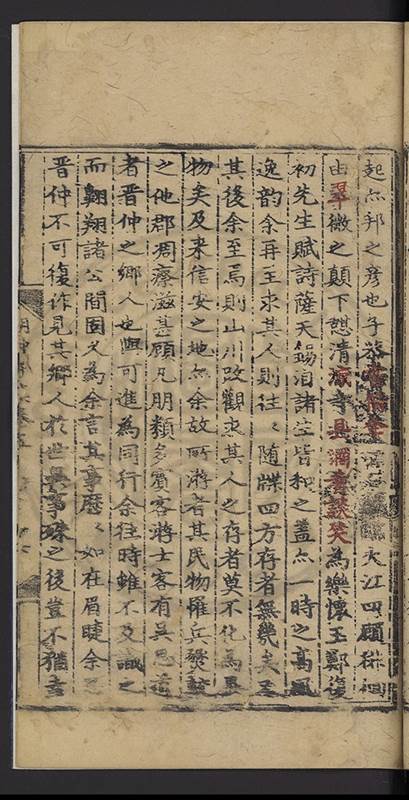 起亦邦之彦也予 大江四顧徘徊
由翠微之顛下憇清 寺具酒 談笑為樂懷王鄭復
初先生賦詩薩天錫洎諸 皆和之蓋亦一時之高風
逸韵余再主求其人則往〻随牒四方存者無幾矣
其後余至焉則山川改觀求其人之存者莫不化為異
物矣及来信安之地亦余故所游者其民物罹兵發
之他郡凋瘵滋甚顧凡朋類多賓客游士客有吴思
者晋仲之鄉人也與可進為同行余往時雖不及識之
而翺翔諸公間固久為余言其事歷〻如在眉睫余
晋仲不可復作見其鄉人於世異事殊之後豈不猶